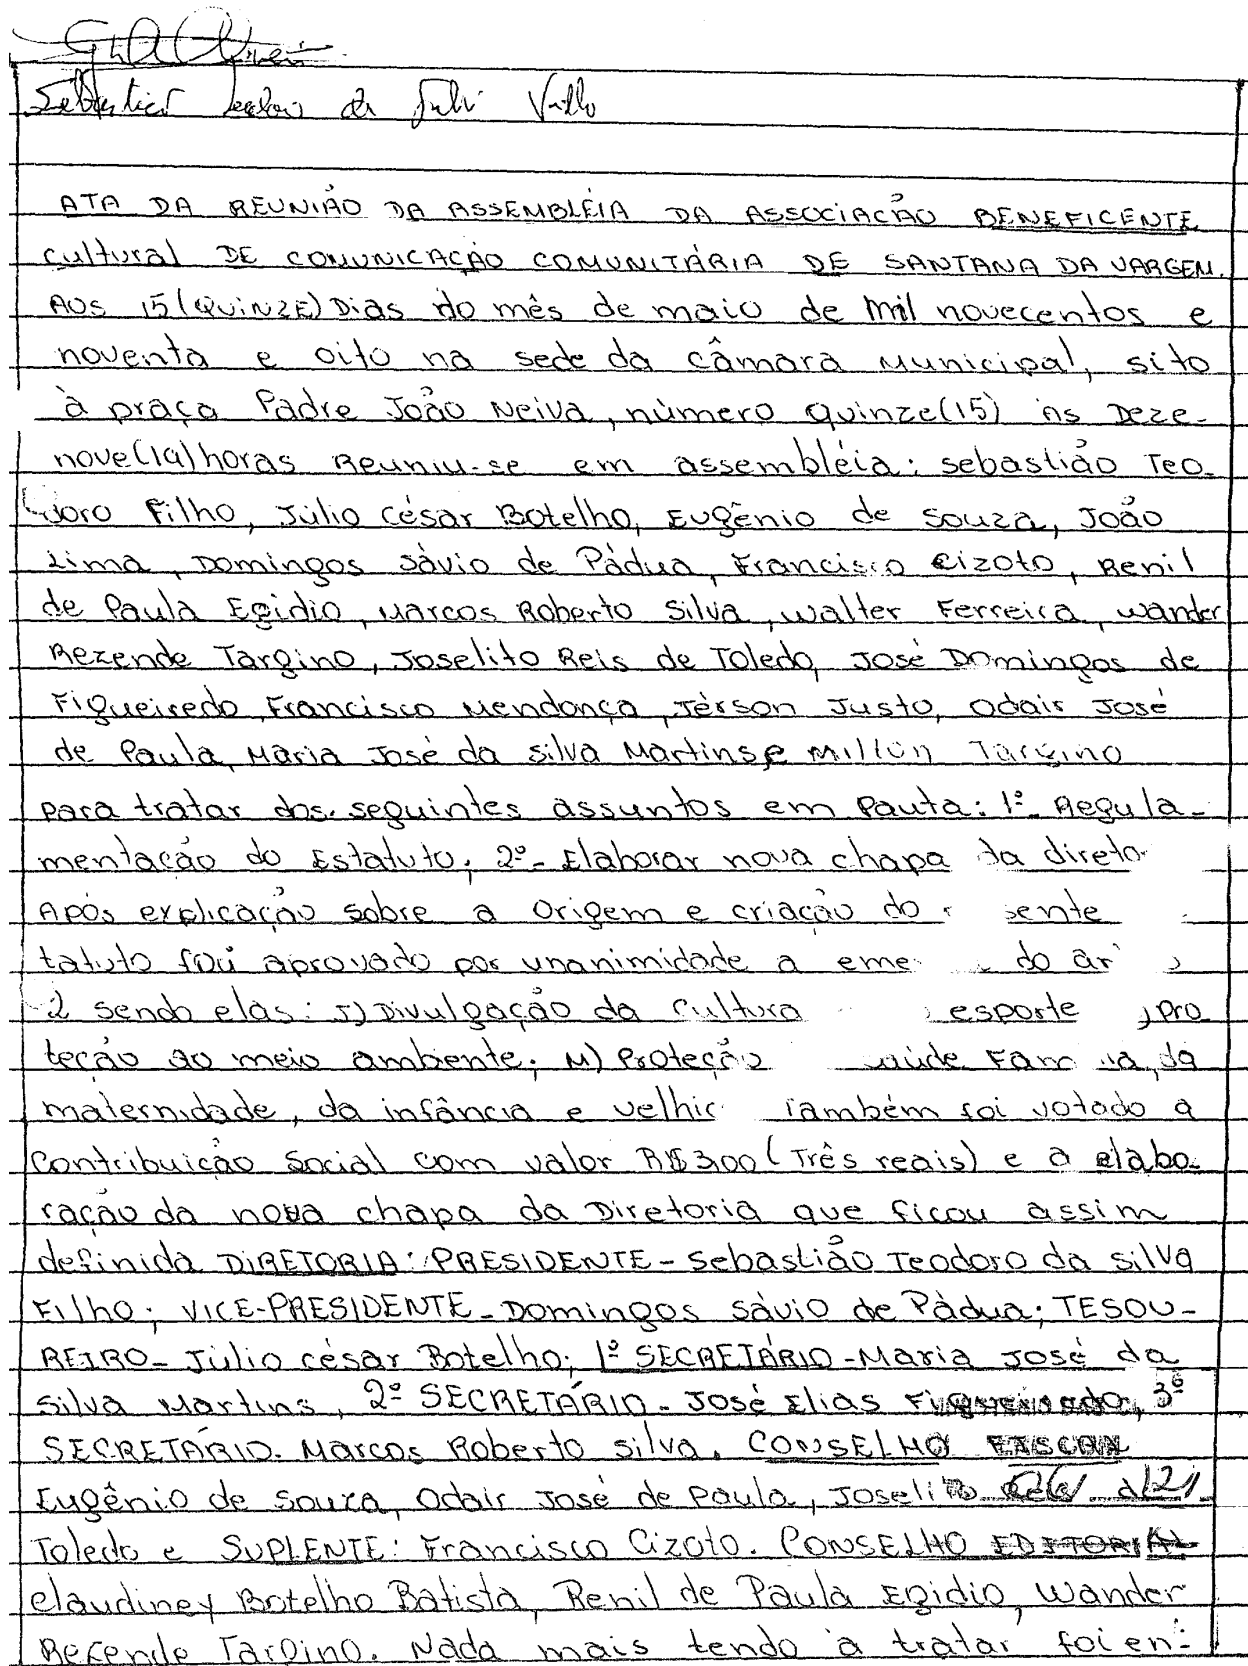 ATA DA REUNIÃO DA ASSEMBLÉIA DA ASSOCIAÇÃO BENEFICENTE
cultural DE COMUNICAÇÃO COMUNITÁRIA DE SANTANA DA VARGEM.
AOS 15 (QUINZE) Dias do mês de maio de mil novecentos e
noventa e oito na sede da câmara Municipal, sito
à praça Padre João Neiva, número quinze (15) às Deze-
nove (19) horas Reuniu-se em assembléia: sebastião Teo-
doro Filho, Júlio césar Botelho, Eugênio de souza, João
Lima, Domingos sávio de Pádua, Francisco Cizoto, Renil
de Paula Egidio, Marcos Roberto Silva, walter Ferreira, wander
Rezende Targino, Joselito Reis de Toledo, José Domingos de
Figueiredo, Francisco Mendonça, Jérson Justo, Odair José
de Paula, Maria José da silva Martins e Millon Targino
para tratar dos seguintes assuntos em Pauta: 1º- Regula-
mentação do Estatuto; 2º- Elaborar nova chapa da direto
Após explicação sobre a Origem e criação do sente
tatuto foi aprovado por unanimidade a eme do ar
2 sendo elas: J) Divulgação da Cultura esporte, pro
teção ao meio ambiente; M) Proteção saúde Fam ia, da
maternidade, da infância e velhic Também foi votado a
Contribuição Social com valor R$ 3,00 (Três reais) e a elabo-
ração da nova chapa da Diretoria que ficou assim
definida DIRETORIA: PRESIDENTE - Sebastião Teodoro da silva
Filho; VICE-PRESIDENTE - Domingos Sávio de Pádua; TESOU-
REIRO - Júlio césar Botelho; 1º SECRETÁRIO - Maria José da
Silva Martins, 2º SECRETÁRIO - José Elias Figueiredo, 3º
SECRETÁRIO. Marcos Roberto silva. CONSELHO FISCAL
Eugênio de Souza, Odair José de Paula, Joselito
Toledo e SUPLENTE: Francisco Cizoto. CONSELHO EDITORIAL
claudiney Botelho Batista, Renil de Paula Egidio, Wander
Rezende Targino. Nada mais tendo a tratar foi en-